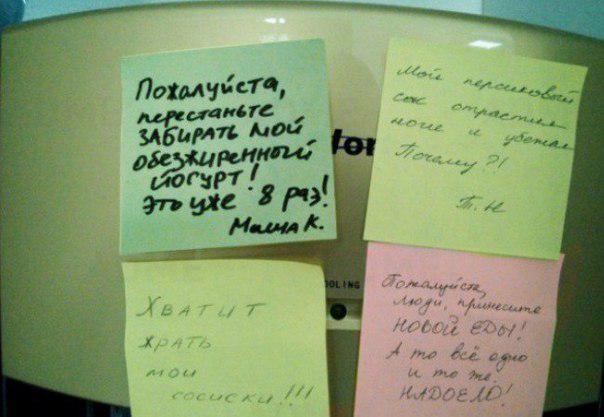 Пожалуйста,
перестаньте
ЗАБИРАТЬ МОЙ
обезжиренный
йогурт!
Это уже 8 раз!
Маша К.
Мой персиковый
сок отрастил
ноги и убежал
Почему?!
Т.Н
ХВАТИТ
ЖРАТЬ
МОИ
СОСИСКИ!!!
OLING
Пожалуйста,
люди, принесите
НОВОЙ ЕДЫ!
А то всё одно
и то же.
НАДОЕЛО!